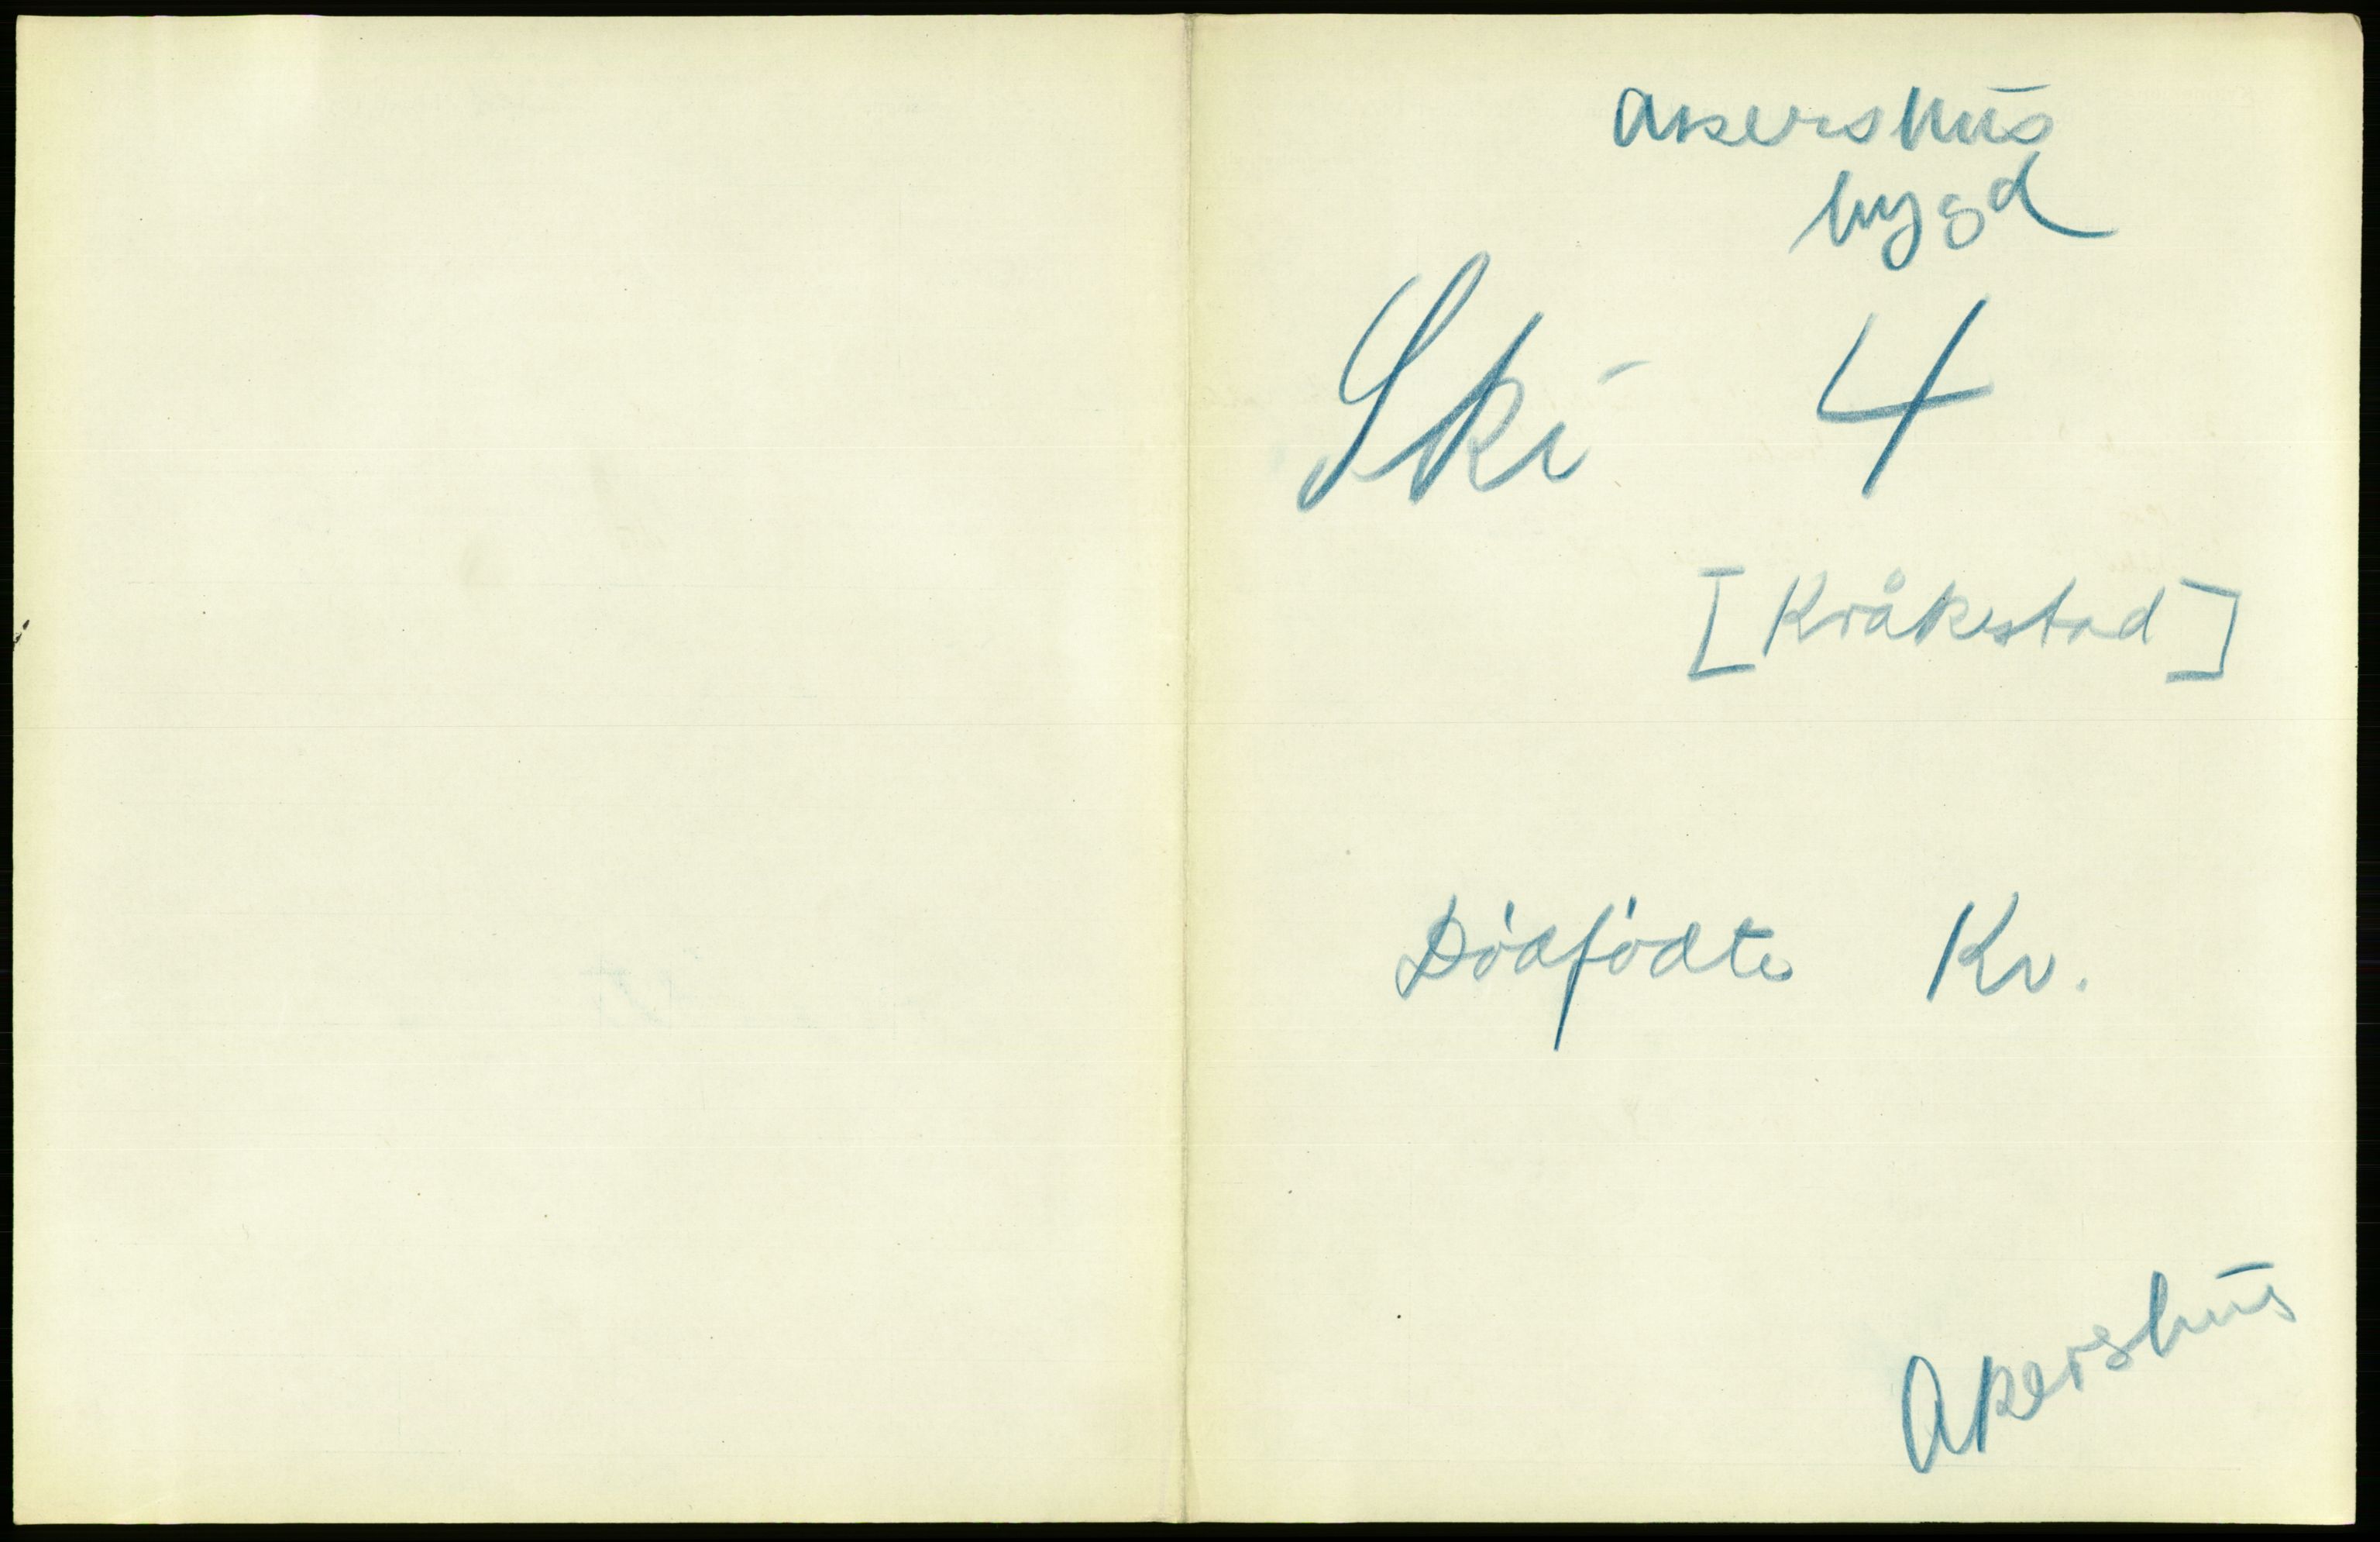 Akershus
bygd
Ski 4
[Kråkstad]
Dødfødte Kv.
Akershus